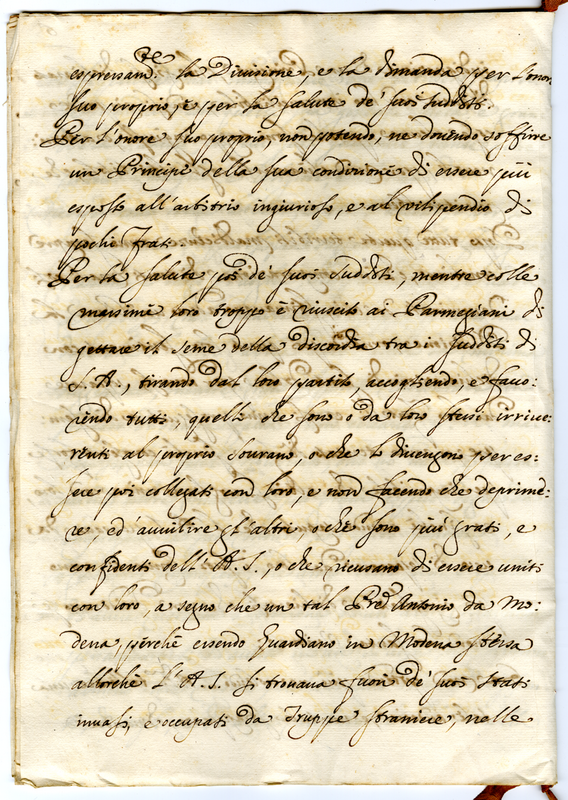 espressam.te la Divisione, e la dimanda per l'onor
suo proprio, e per la salute de' suoi sudditi.
Per l'onore suo proprio, non potendo, ne dovendo soffrire
un Principe della sua condizione di essere più
esposto all'arbitrio ingiurioso, e al vilipendio di
pochi frati.
Per la salute poi de' suoi sudditi, mentre colle
massime loro troppo è riuscito ai Parmegiani di
gettare il seme della discordia tra i sudditi di
S. A., tirando dal loro partito, accogliendo, e favo:
rendo tutti, quelli che sono o da loro stessi irrive:
renti al proprio sovrano, o che lo divengon per es:
sere poi collegati con loro, e non facendo che deprime:
re, ed avvilire gl'altri, o che sono più grati, e
confidenti dell'A. S., o che ricusano di essere uniti
con loro, a segno che un tal Pred.e Antonio da Mo:
dena, perchè essendo Guardiano in Modena stessa
allorchè l'A. S. si trovava fuori de' suoi stati
invasi, e occupati da Truppe straniere, nelle